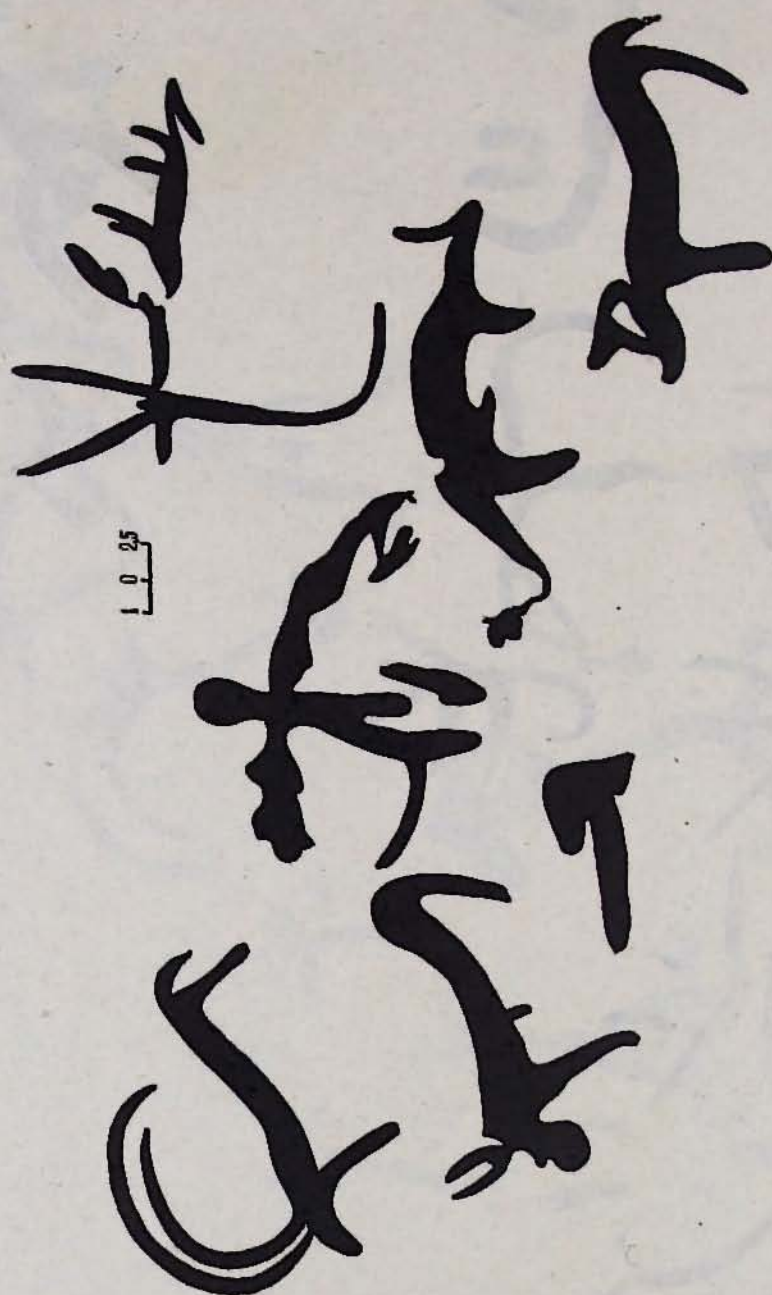 1 0 25